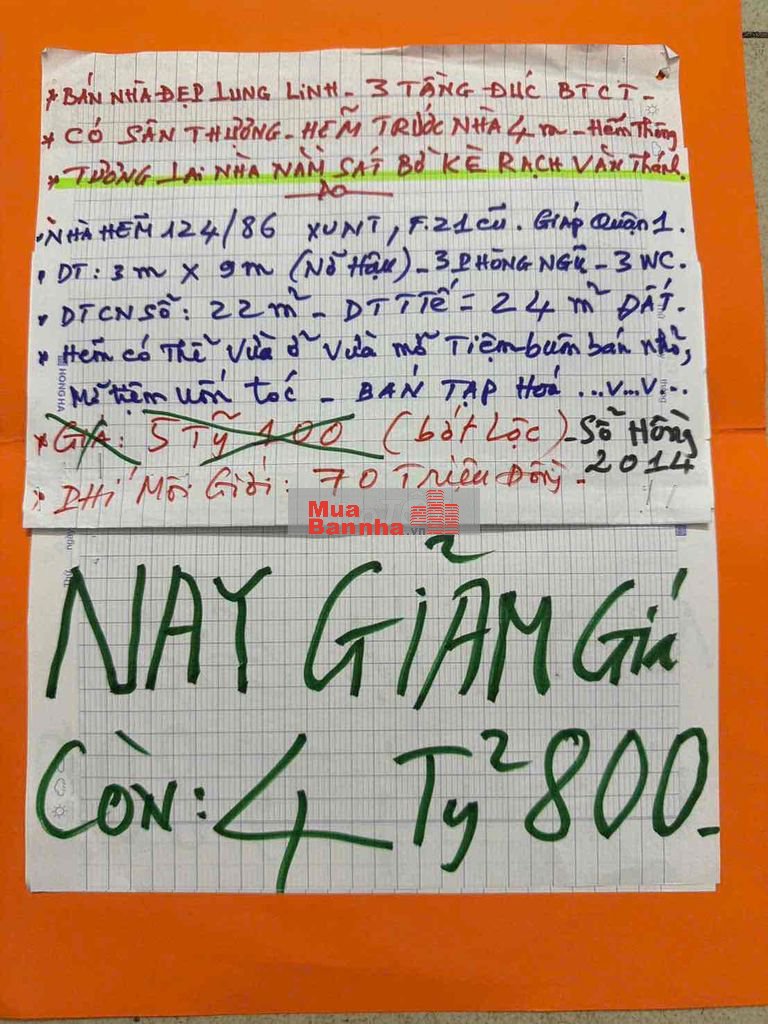 * BÁN NHÀ ĐẸP LUNG LINH - 3 TẦNG ĐÚC BTCT -
* CÓ SÂN THƯỢNG - HẺM TRƯỚC NHÀ 4m - Hẻm Thông
* TƯƠNG LAI NHÀ NẰM SÁT BỜ KÈ RẠCH VĂN Thánh.
• NHÀ HẺM 124/86 XVNT, F.21 cũ. Giáp Quận 1.
• DT: 3m x 9m (Nở Hậu) - 3 PHÒNG NGỦ - 3 WC.
• DTCN Sổ: 22m² - DT TTế = 24m² ĐẤT.
* Hẻm có Thể Vừa ở Vừa mở Tiệm buôn bán nhỏ,
Mở tiệm uốn tóc - BÁN TẠP Hoá ...v...v...
* GIÁ: 5 Tỷ 100 (bớt Lộc) - Sổ Hồng
2014
• PHÍ Môi Giới: 70 Triệu Đồng -
Mua
Bannha.vn
NAY GIẢM Giá
CÒN: 4 Tỷ 800 -